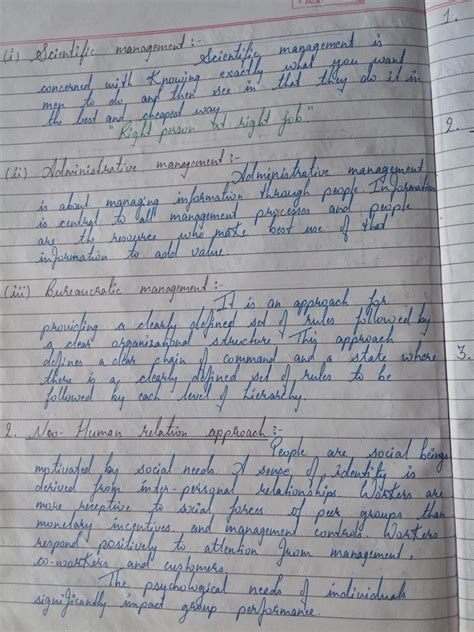 (i) Scientific management :-
Scientific management is
concerned with knowing exactly what you want
men to do and then see in that they do it in
the best and cheapest way.
"Right person at right job"
(ii) Administrative management :-
Administrative management
is about managing information through people. Information
is central to all management processes and people
are the resource who make best use of that
information to add value.
(iii) Bureaucratic management :-
It is an approach for
providing a clearly defined set of rules followed by
a clear organizational structure. This approach
defines a clear chain of command and a state where
there is a clearly defined set of rules to be
followed by each level of hierarchy.
2. Neo-Human relation approach :-
People are social beings
motivated by social needs. A sense of identity is
derived from inter-personal relationships. Workers are
more receptive to social forces of peer groups than
monetary incentives and management controls. Workers
respond positively to attention from management,
co-workers and customers.
The psychological needs of individuals
significantly impact group performance.
1.
2.
3.